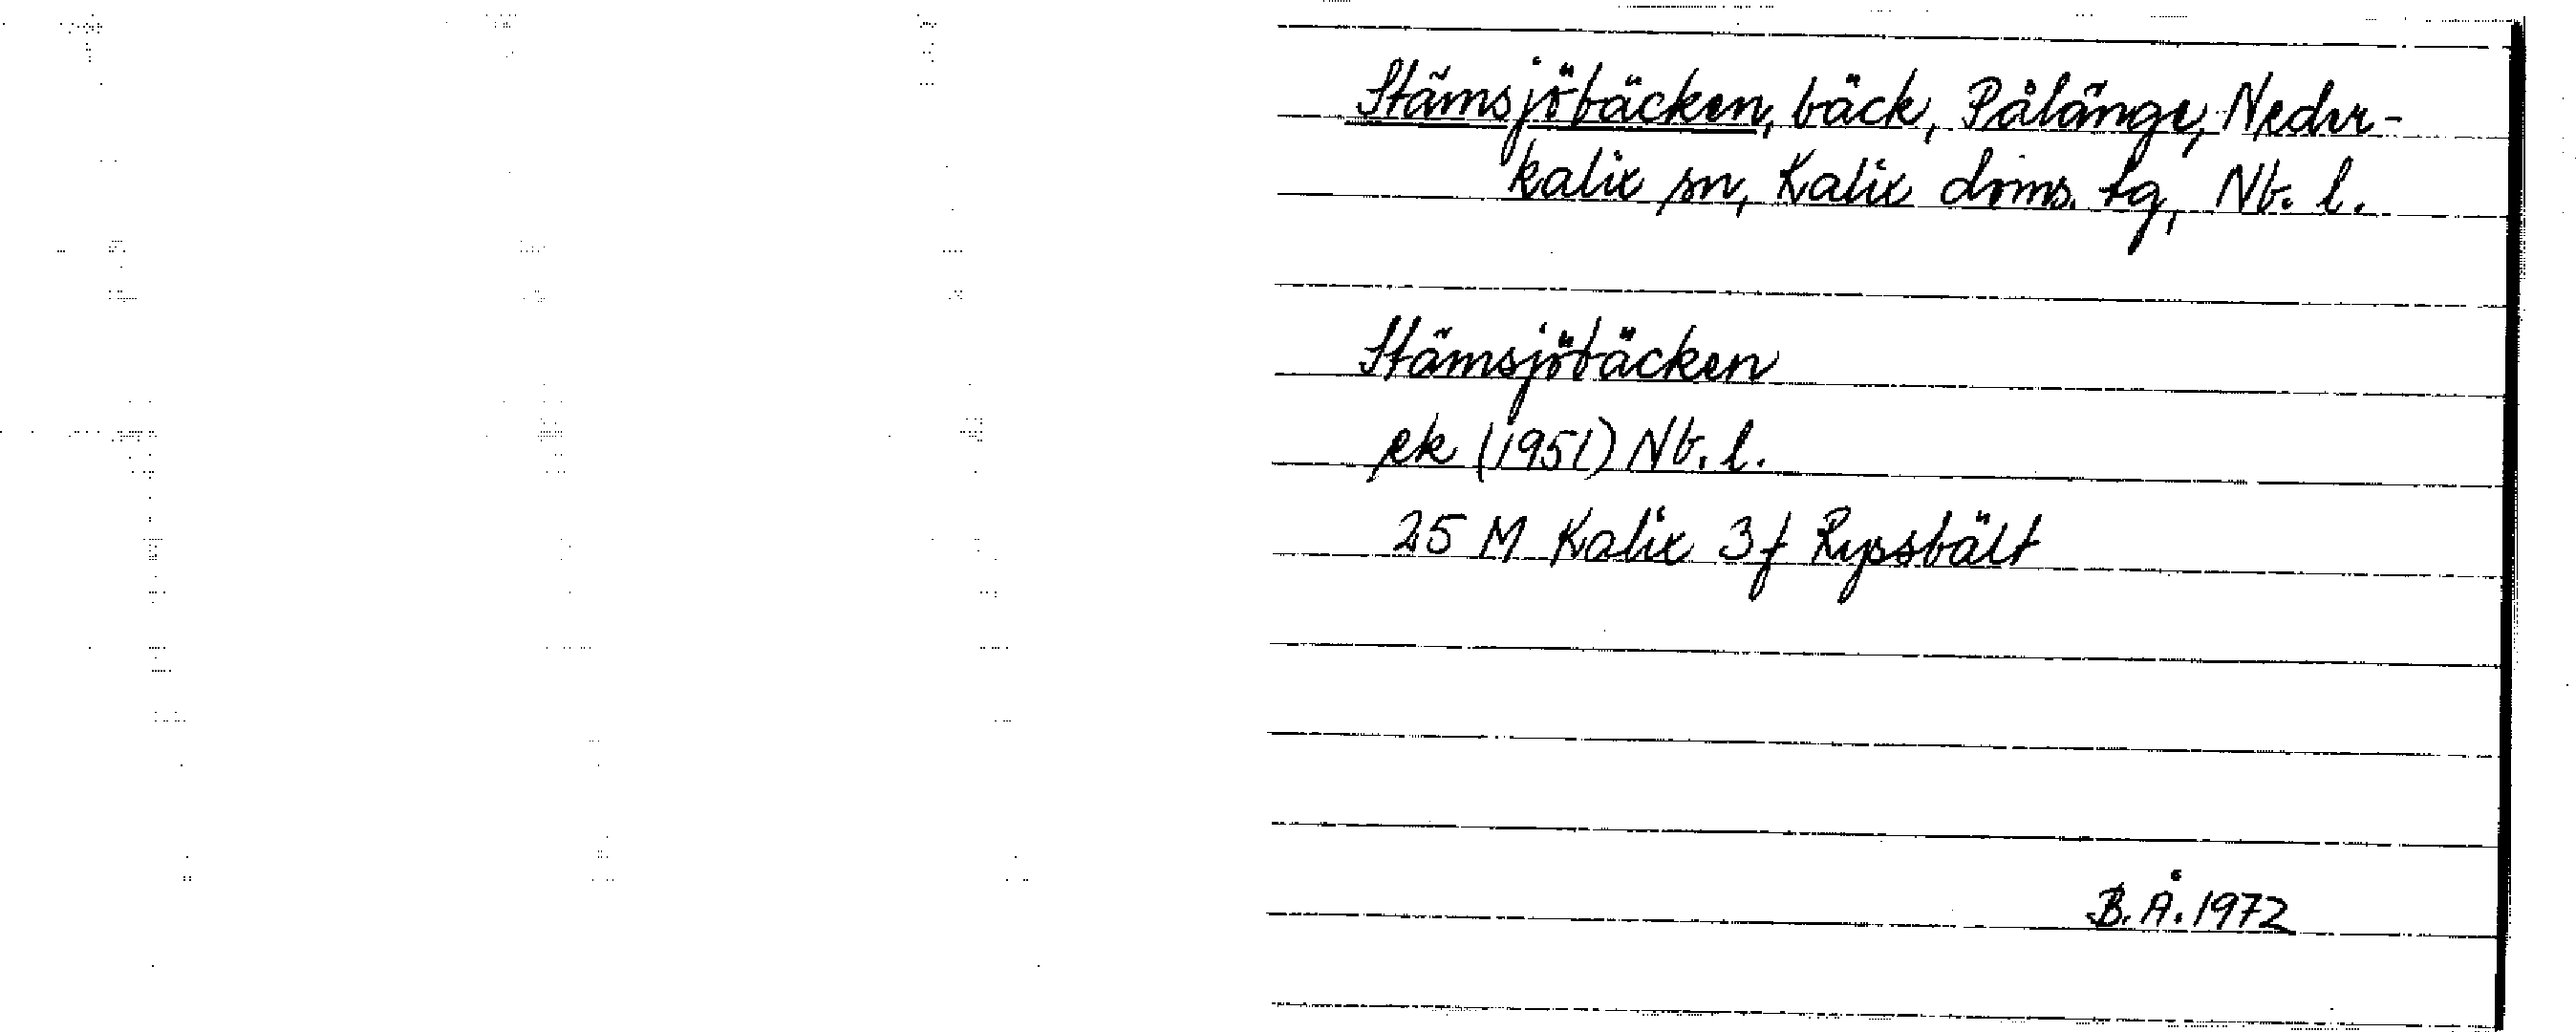 Stämsjöbäcken, bäck, Pålänge, Neder-
kalix sn, Kalix doms. tg, Nb. l.
Stämsjöbäcken
ek (1951) Nb. l.
25 M Kalix 3f Ryssbält
B. Å. 1972